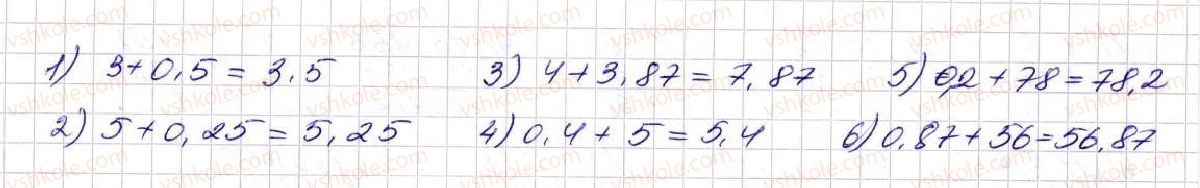 1) 3+0,5 = 3,5
2) 5+0,25 = 5,25
3) 4+3,87 = 7,87
4) 0,4+5 = 5,4
5) 0,2+78 = 78,2
6) 0,87+56=56,87